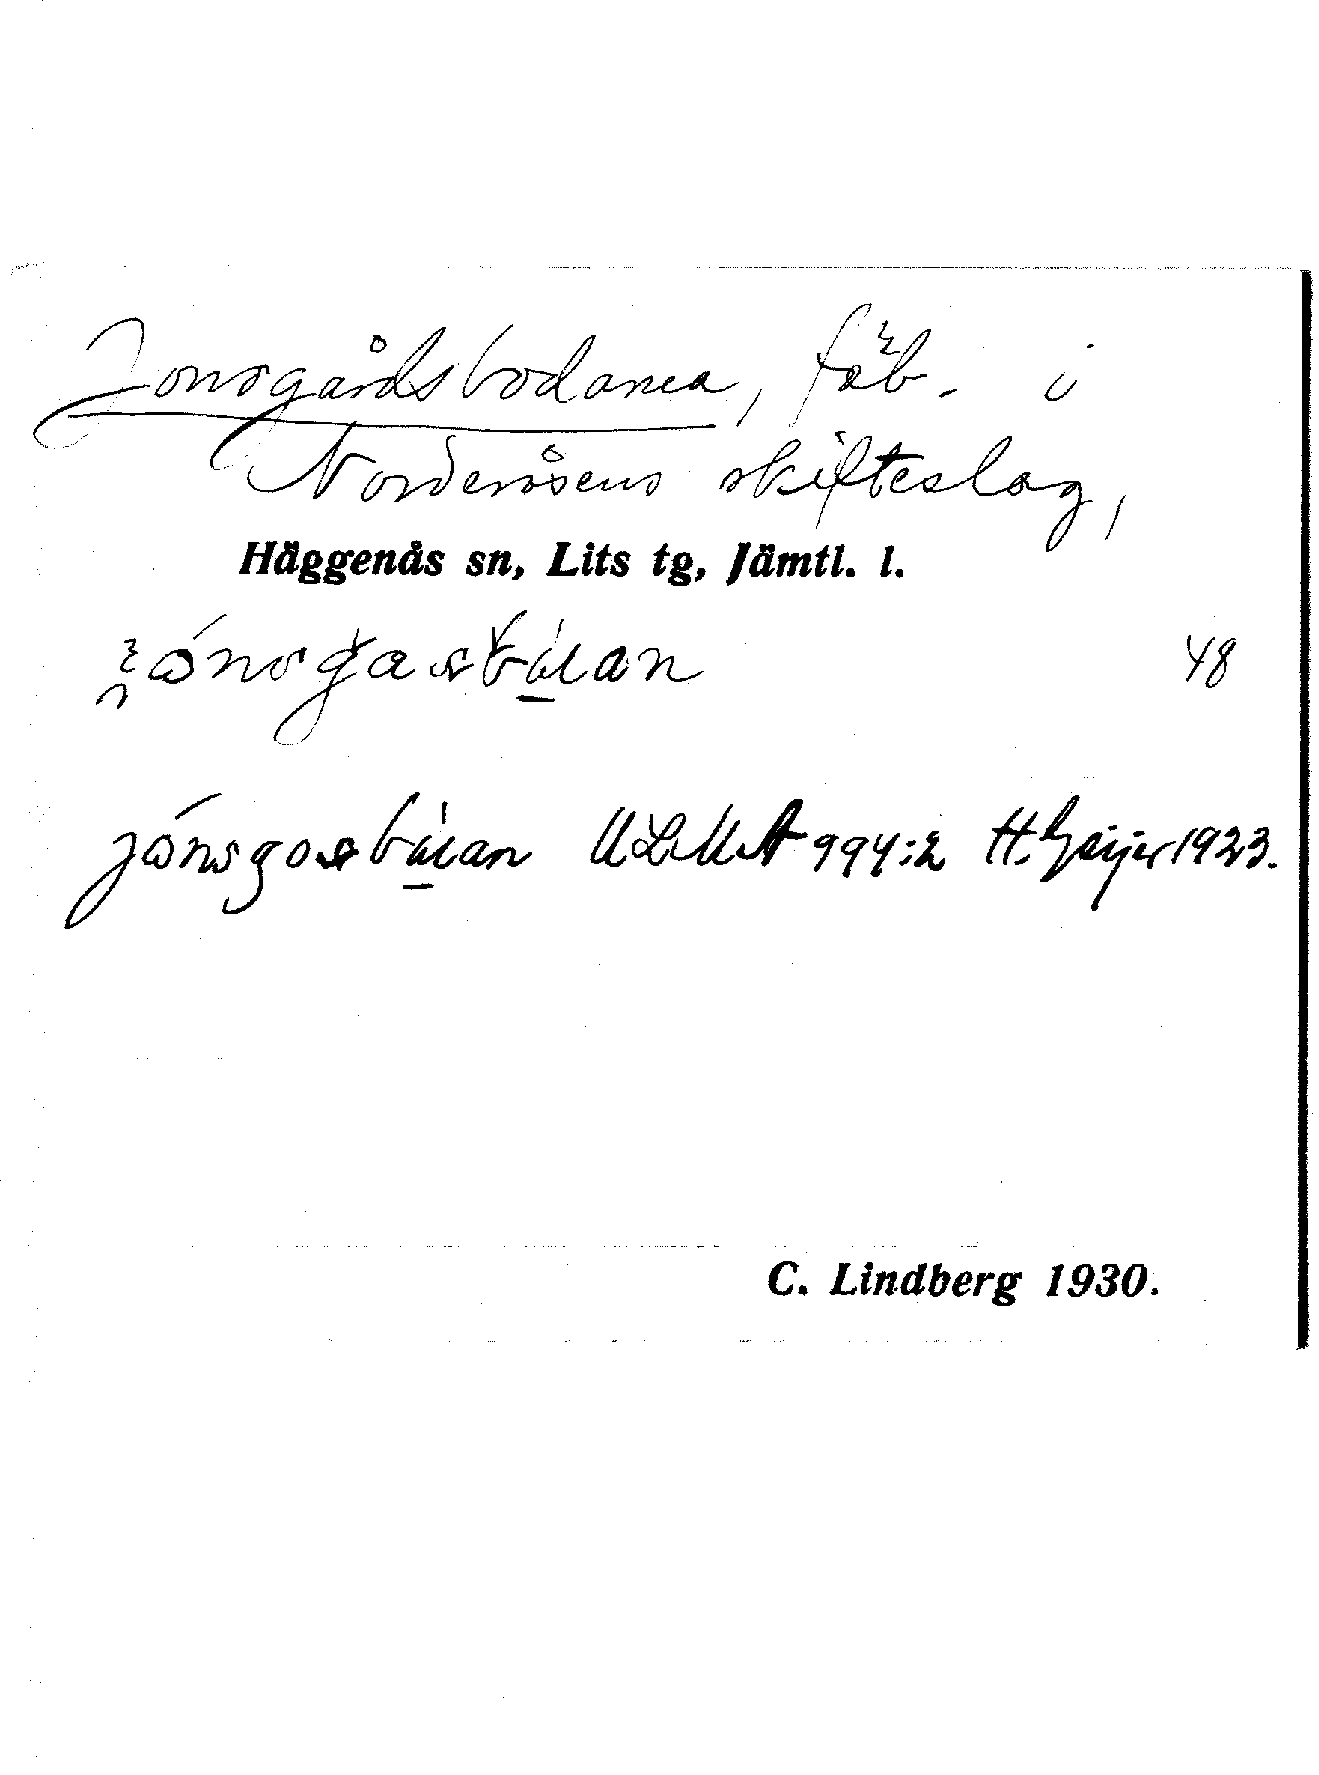 Jonsgårdsbodarna, fäb. i
Norderåsens skifteslag,
Häggenås sn, Lits tg, Jämtl. l.
48
ULMA 994:2 H. Geijer 1923.
C. Lindberg 1930.